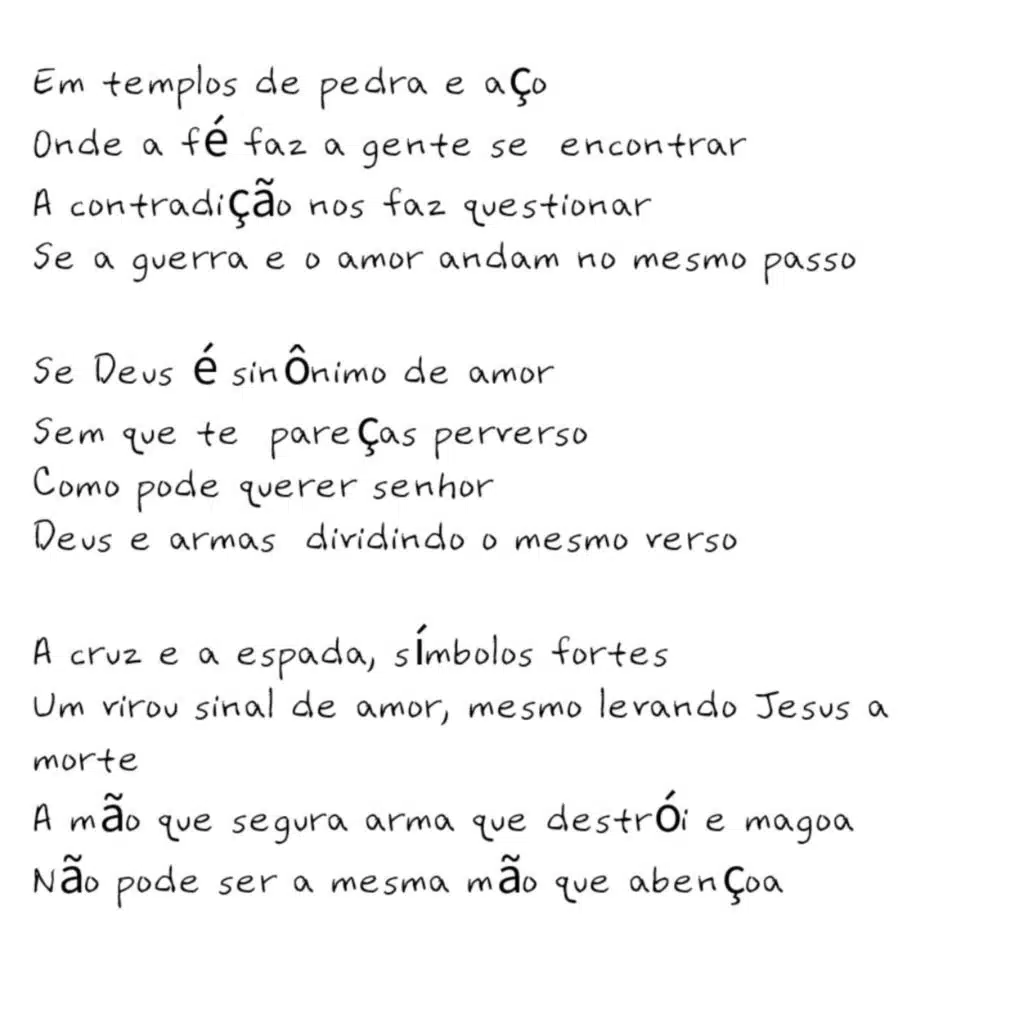 Em templos de pedra e aço
Onde a fé faz a gente se encontrar
A contradição nos faz questionar
Se a guerra e o amor andam no mesmo passo
Se Deus é sinônimo de amor
Sem que te pareças perverso
Como pode querer senhor
Deus e armas dividindo o mesmo verso
A cruz e a espada, símbolos fortes
Um virou sinal de amor, mesmo levando Jesus a
morte
A mão que segura arma que destrói e magoa
Não pode ser a mesma mão que abençoa